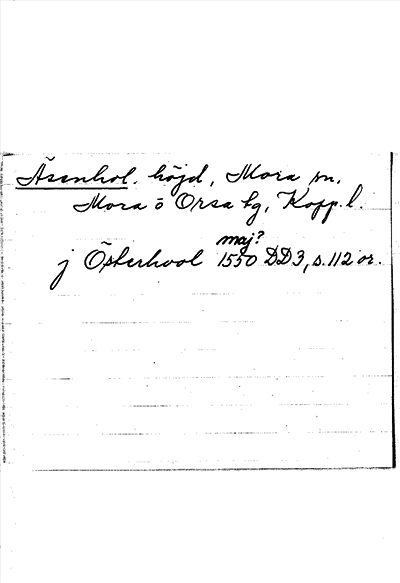 Åsenhol. höjd, Mora sn.
Mora o Orsa tg, Kopp. l.
maj?
j Österhool 1550 DD3, s. 112 or.